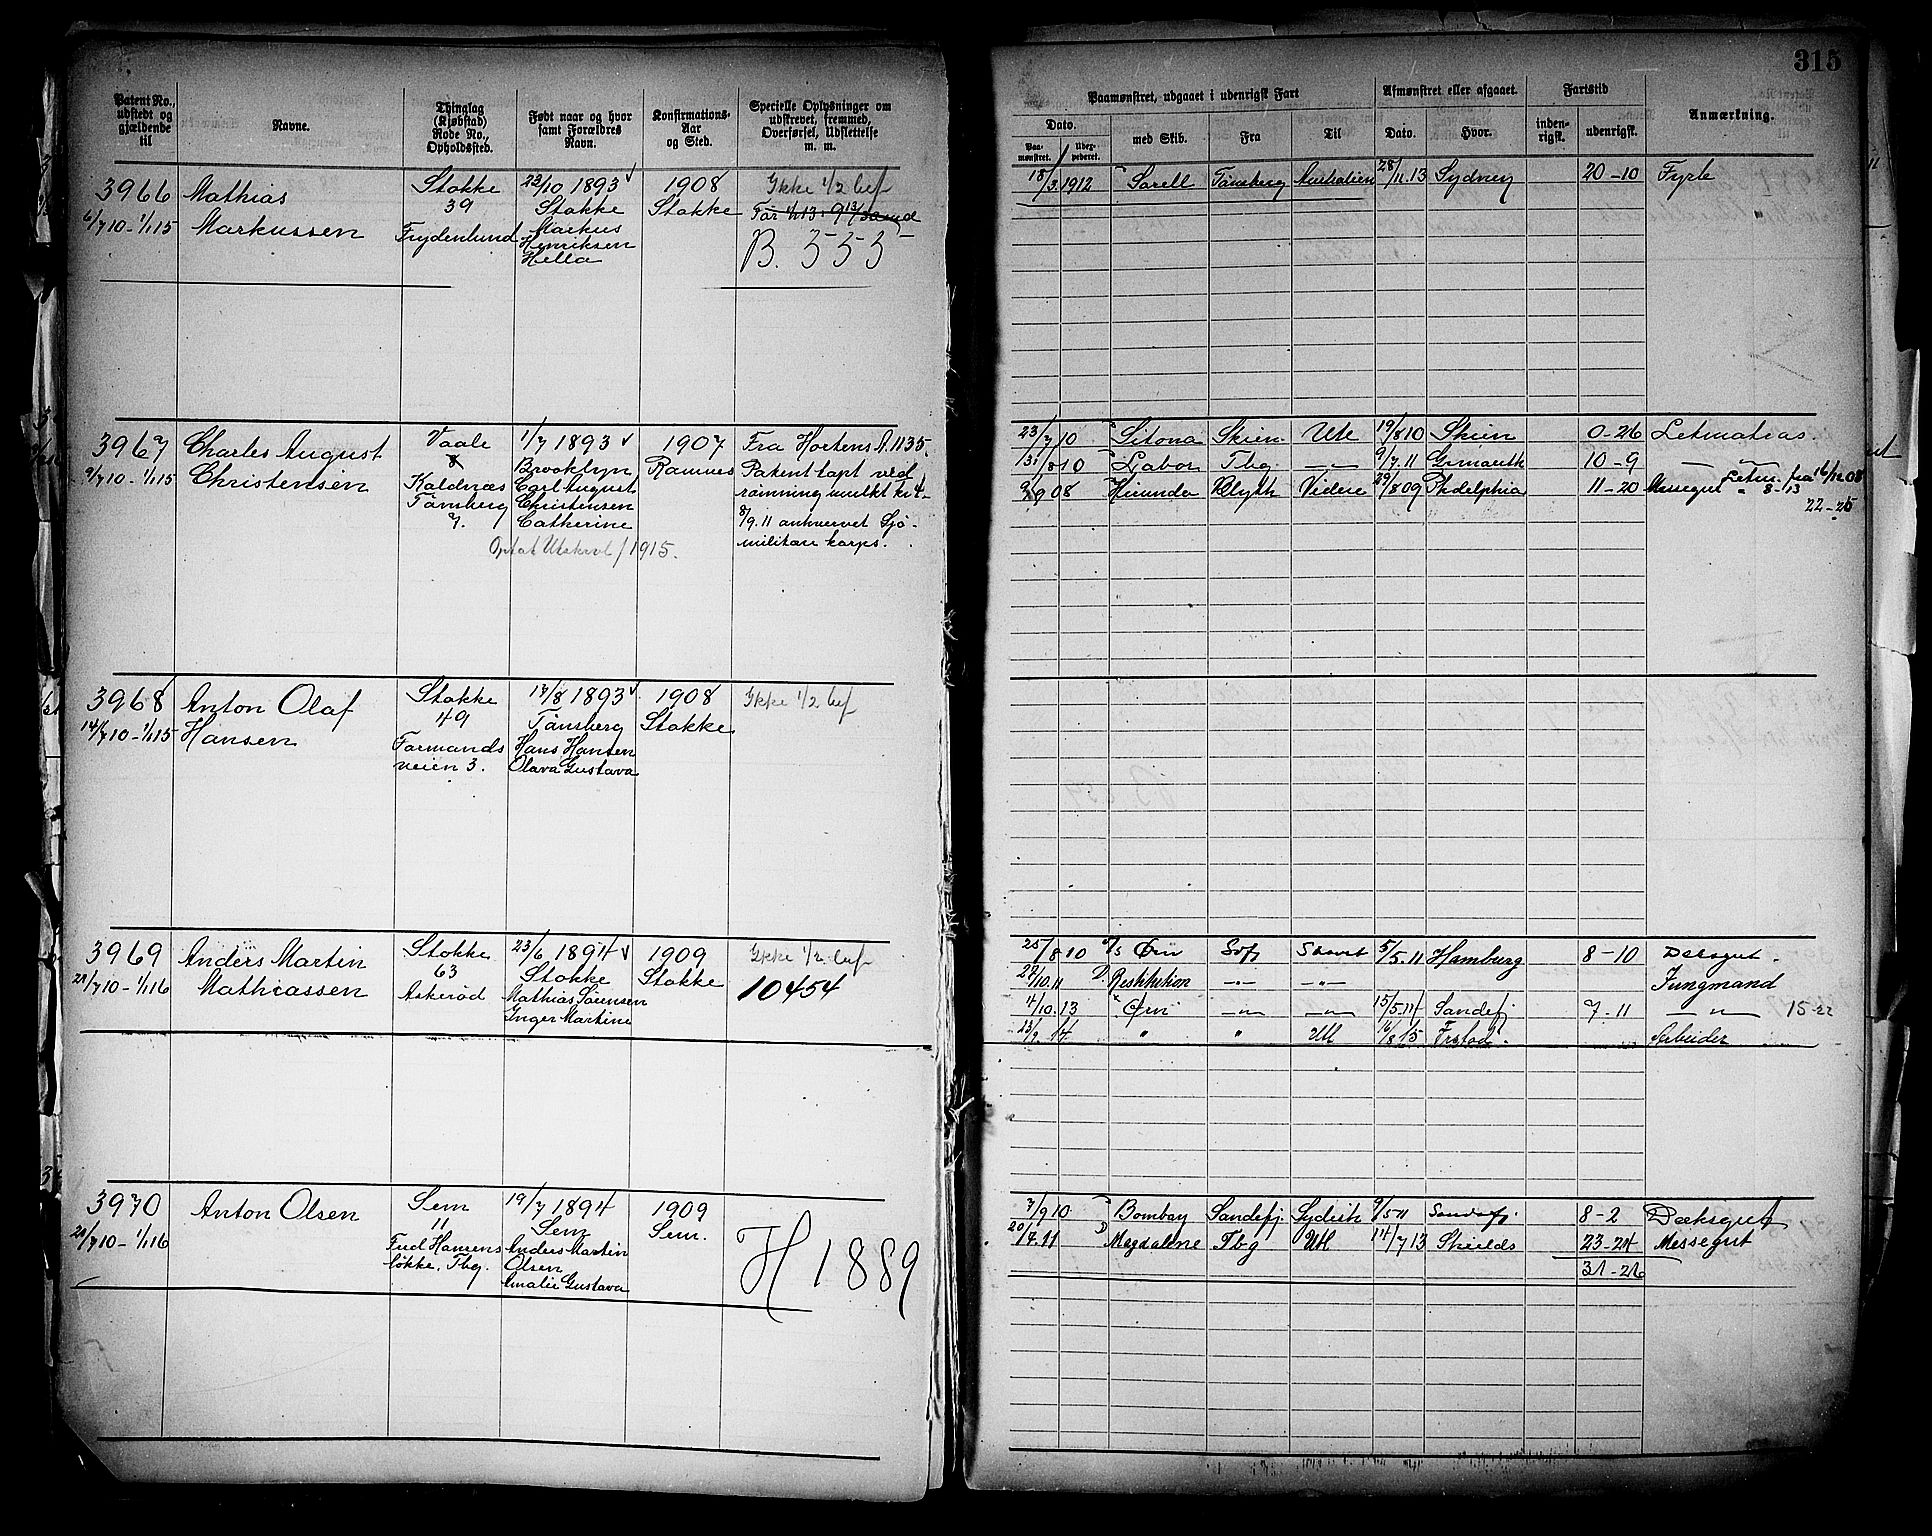 315
Patent No., udstedt og gjældende til
Navne.
Thinglag (Kjøbstad) Rode No., Opholdssted.
Født naar og hvor samt Forældres Navn.
Konfirmations-Aar og Sted.
Specielle Oplysninger om udskrevet, fremmed, Overførsel, Udslettelse m. m.
Paamønstret, udgaaet i udenrigsk Fart
Afmønstret eller afgaaet.
Fartstid
Anmærkning.
Dato.
Paamønstret.
med Skib.
Fra
Til
Dato.
Hvor.
indenrigsk.
udenrigsk.
3966 Mathias Stokke 23/10 1893 1908 Ikke 1/2 bef
6/7 10 - 1/1 15 Markussen 39 Stokke Stokke
Frydenlund Markus
Henriksen
Hella
B. 555
18/3 1912 Sorell Tønsberg Australien 28/11.13 Sydney 20-10 Fyrb
3967 Charles August Vaale 1/7 1893 1907 Fra Hortens A. 1135.
9/7 10 - 1/1 15 Christensen 8 Brooklyn Ramnes Patent tapt ved
Kaldnæs Carl August rømning mulkt kr 4-
Tønsberg Christensen 8/9.11 anhvervet Sjø-
7. Catherine militære korps.
1915.
23/7 10 Sitona Skien Ute 19/8 10 Skien 0-26 Letmatros
31/8 10 Labor Tbg. 9/7.11 Grmouth 10-9
9/9 08 Hirundo Blyth Videre 29/8 09 Phdelphia 11-20 Messegut Letm. fra 16/12 08
8-13
22-25
3968 Anton Olaf Stokke 17/8 1893 1908 Ikke 1/2 bef
14/7 10 - 1/1 15 Hansen 49 Tønsberg Stokke
Farmands Hans Hansen
veien 3. Olava Gustava
3969 Anders Martin Stokke 23/6 1894 1909 Ikke 1/2 bef
28/7 10 - 1/1 16 Mathiassen 63 Stokke Stokke 10454
Askerød Mathias Sørensen
Inger Martine
25/8 10 Ørn Sdfj 5/5.11 Hamburg 8-10 Deksgut.
28/10.11 D. Restitution - " - - " - Jungmand
4/10.13 Ørn - " - - " - 15/5.14 Sandefj 7-11 - " - 15-22
13/9. 14 " " Utl 16/8 15 Frstad. Arbeider
3970 Anton Olsen Sem 19/7 1894 1909
28/7 10 - 1/1 16 11 Sem Sem.
Fred Hansens Anders Martin
løkke. Tbg. Olsen
Amalie Gustava
H 1889
7/9 10 Bombay Sandefj. Sydish 9/5 11 Sandefj. 8-2 Dæksgut
20/7.11 D Magdalene Tbg Utl 14/7 13 Shields 23-24 Messegut
31-26